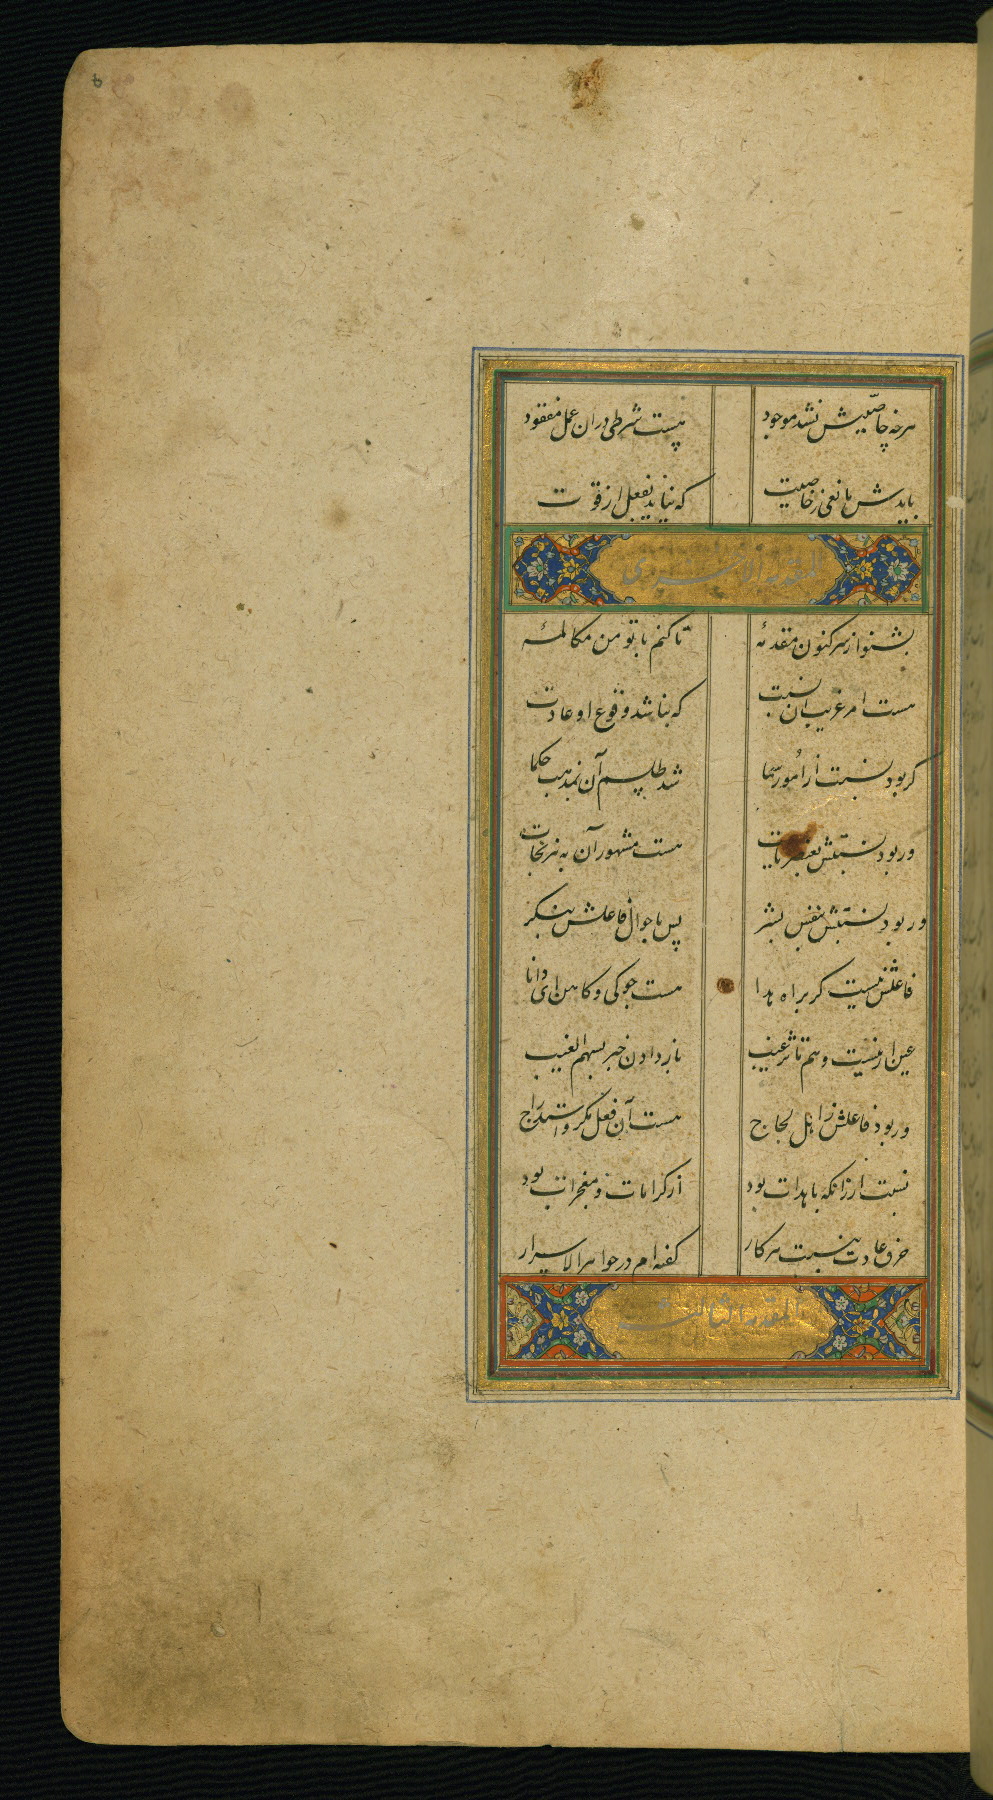 هرچه خاصیتش نشد موجود نیست شرطی در ان عمل مفقود
بایدش مانعی ز خاصیت که نیاید بفعل از قوت
المقدمه الاخری
بشنو از سر کنون مقدمهٔ تا کنم با تو من مکالمهٔ
هست امر غریب ان نسبت که نباشد وقوع او عادت
کر بود نسبت از امور سما شد طلسم آن بمذهب حکما
ور بود نسبتش بعنصریات هست مشهور آن به نیرنجات
ور بود نسبتش بنفس بشر پس باحوال فاعلش بنکر
فاعلش نیست کر براه هدا هست جوکی و کاهن ای دانا
عین از نیست و هم تاثر غیب باز دادن خبر بسهم الغیب
ور بود فاعلش ز اهل لجاج هست آن فعل مکر و استدراج
نسبت ار زانکه باهدات بود از کرامات و معجزات بود
خرق عادت نسبت هر کار کفته ام در جواهر الاسرار
المقدمه الثالثه